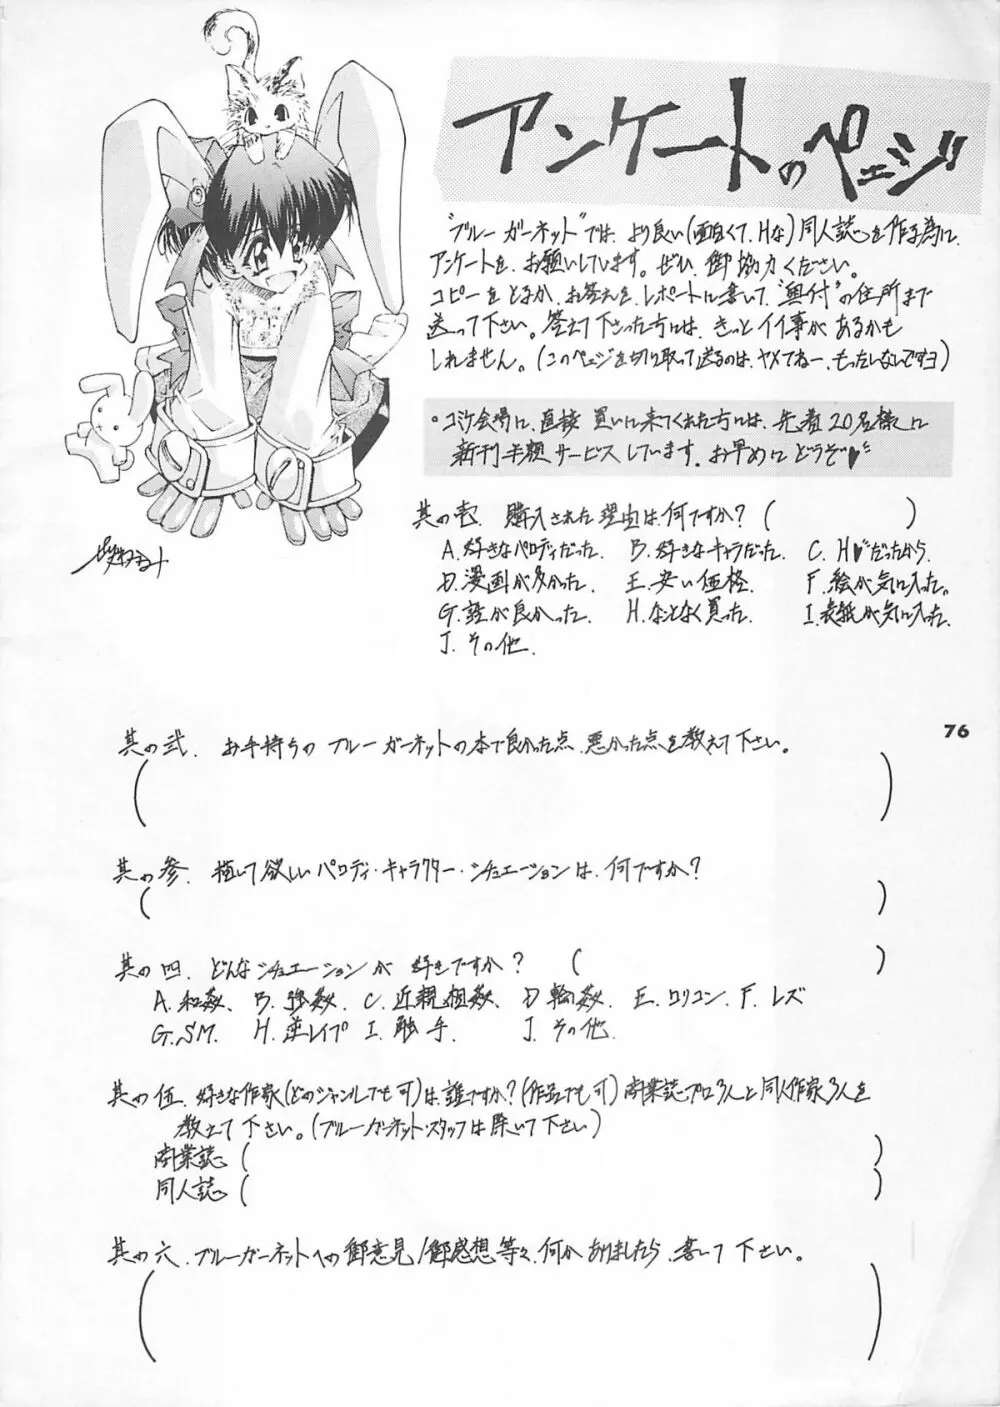 アンケートのページ
"ブルーガーネット"では、より良い(面白くて、Hな)同人誌を作る為に、
アンケートを、お願いしています。ぜひ、御協力ください。
コピーをとるか、お答えを、レポートに書いて、"奥付"の住所まで
送って下さい。答えて下さった方には、きっとイイ事があるかも
しれません。(このページを切り取って送るのは、ヤメてねー、もったいないですヨ)
・コミケ会場に、直接 買いに来てくれた方には、先着20名様に
新刊半額サービスしています。お早めにどうぞ♥
其の壱. 購入された理由は、何ですか? ( )
A. 好きなパロディだった. B. 好きなキャラだった. C. H♥だったから.
D. 漫画が多かった. E. 安い価格. F. 絵が気に入った。
G. 話が良かった. H. なんとなく買った. I. 表紙が気に入った.
J. その他.
76
其の弐. お手持ちの ブルーガーネットの本で良かった点、悪かった点を教えて下さい。
( )
其の参. 描いて欲しいパロディ・キャラクター・シチュエーションは、何ですか?
( )
其の四. どんなシチュエーションが 好きですか? ( )
A. 和姦、 B. 強姦、 C. 近親相姦、 D. 輪姦、 E. ロリコン、 F. レズ
G. SM. H. 逆レイプ I. 触手. J. その他.
其の伍. 好きな作家(どのジャンルでも可)は、誰ですか?(作品でも可)商業誌プロ3人と同人作家3人を
教えて下さい。(ブルーガーネット・スタッフは除いて下さい)
商業誌 ( )
同人誌 ( )
其の六. ブルーガーネットへの御意見/御感想 等々、何かありましたら、書いて下さい。
( )